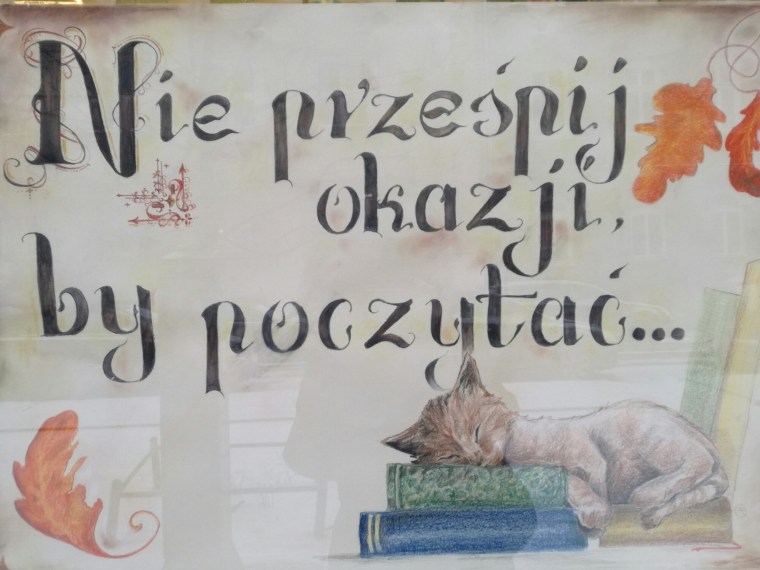 Nie prześpij
okazji,
by poczytać...